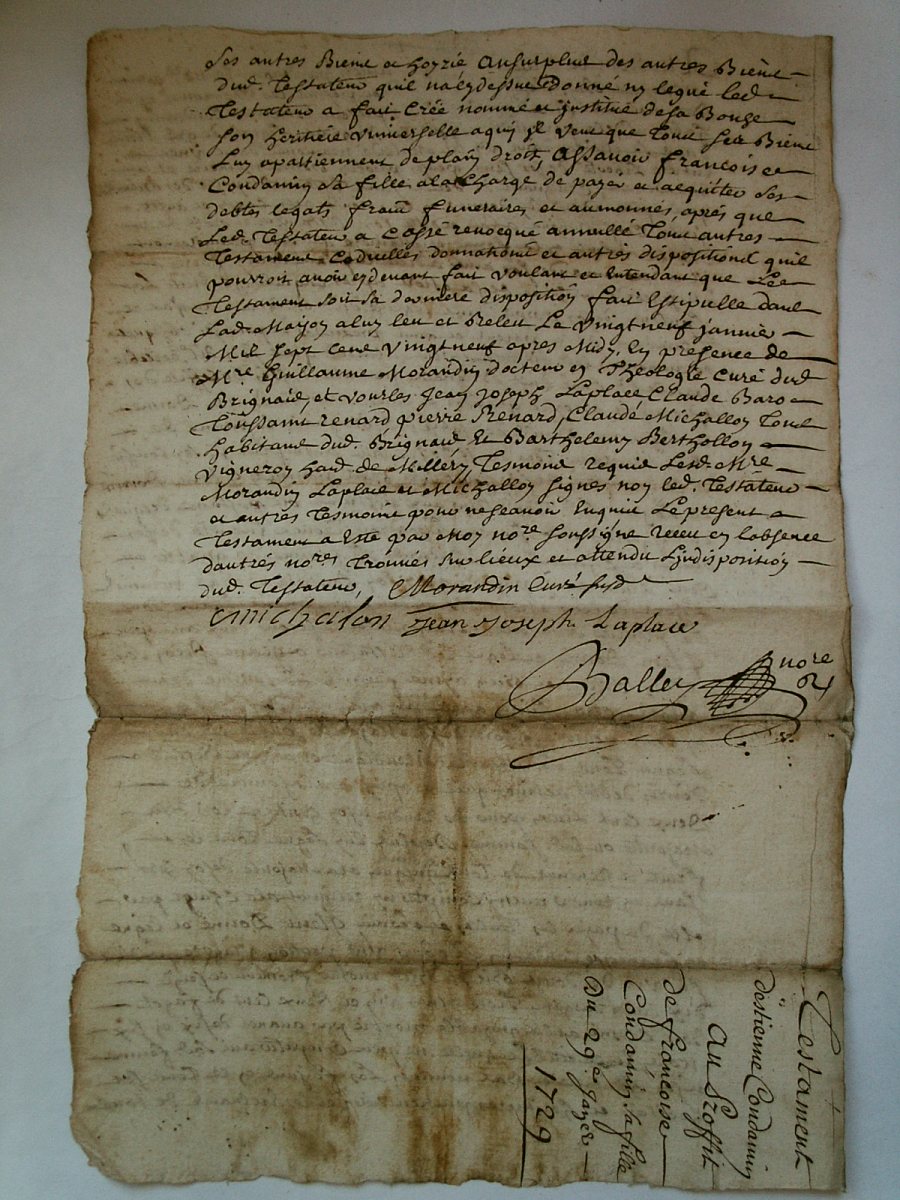 Ses autres Biens et hoyrie ausurplus des autres Biens
dud. Testateur quil na cydessus donné ny legué led.
Testateur a fait Créé nommé et institué desa Bouge
son heritiere universelle aquy il veut que Tous ses Biens
Luy apartiennent deplain droit, assavoir francoise
Condamin sa fille ala Charge de payer et acquiter ses
debtes legats frais funeraires et aumonnes, aprés que
Led. Testateur a Cassé revocqué annullé Tous autres
Testament Codicilles donnations et autres dispositions quil
pourroit avoir cydevant fait voulant et Entendant que Le
Testament soit sa derniere disposition fait Estipullé dans
Lad. Maison aluy leu et Releu Le vingtneuf janvier
Mil sept cens vingtneuf apres Midy, En presence de
Mre. Guillaume Morandin docteur en Theologie Curé dud
Brignais et vourles Jean Joseph Laplace, Claude Baro
Toussaint renard pierre Renard, Claude Michallon Tous
habitans dud. Brignais Et Barthelemy Berthollon
vigneron had. de Millery Tesmoins requis Lesd. Mre
Morandin Laplace et Michallon signes non led. Testateur
et autres Tesmoins pour nescavoir Enquis Le present
Testament a Esté par Moy nore. soussigné receu en labsence
dautres nores Trouvés sur lieux et attendu Lindisposition
dud. Testateur,
Morandin Curé susd
Michalon Jean Joseph Laplace
Balley nore
Testament
destienne Condamin
au proffit
de françoise
Condamin sa fille
du 29e. janer
1729